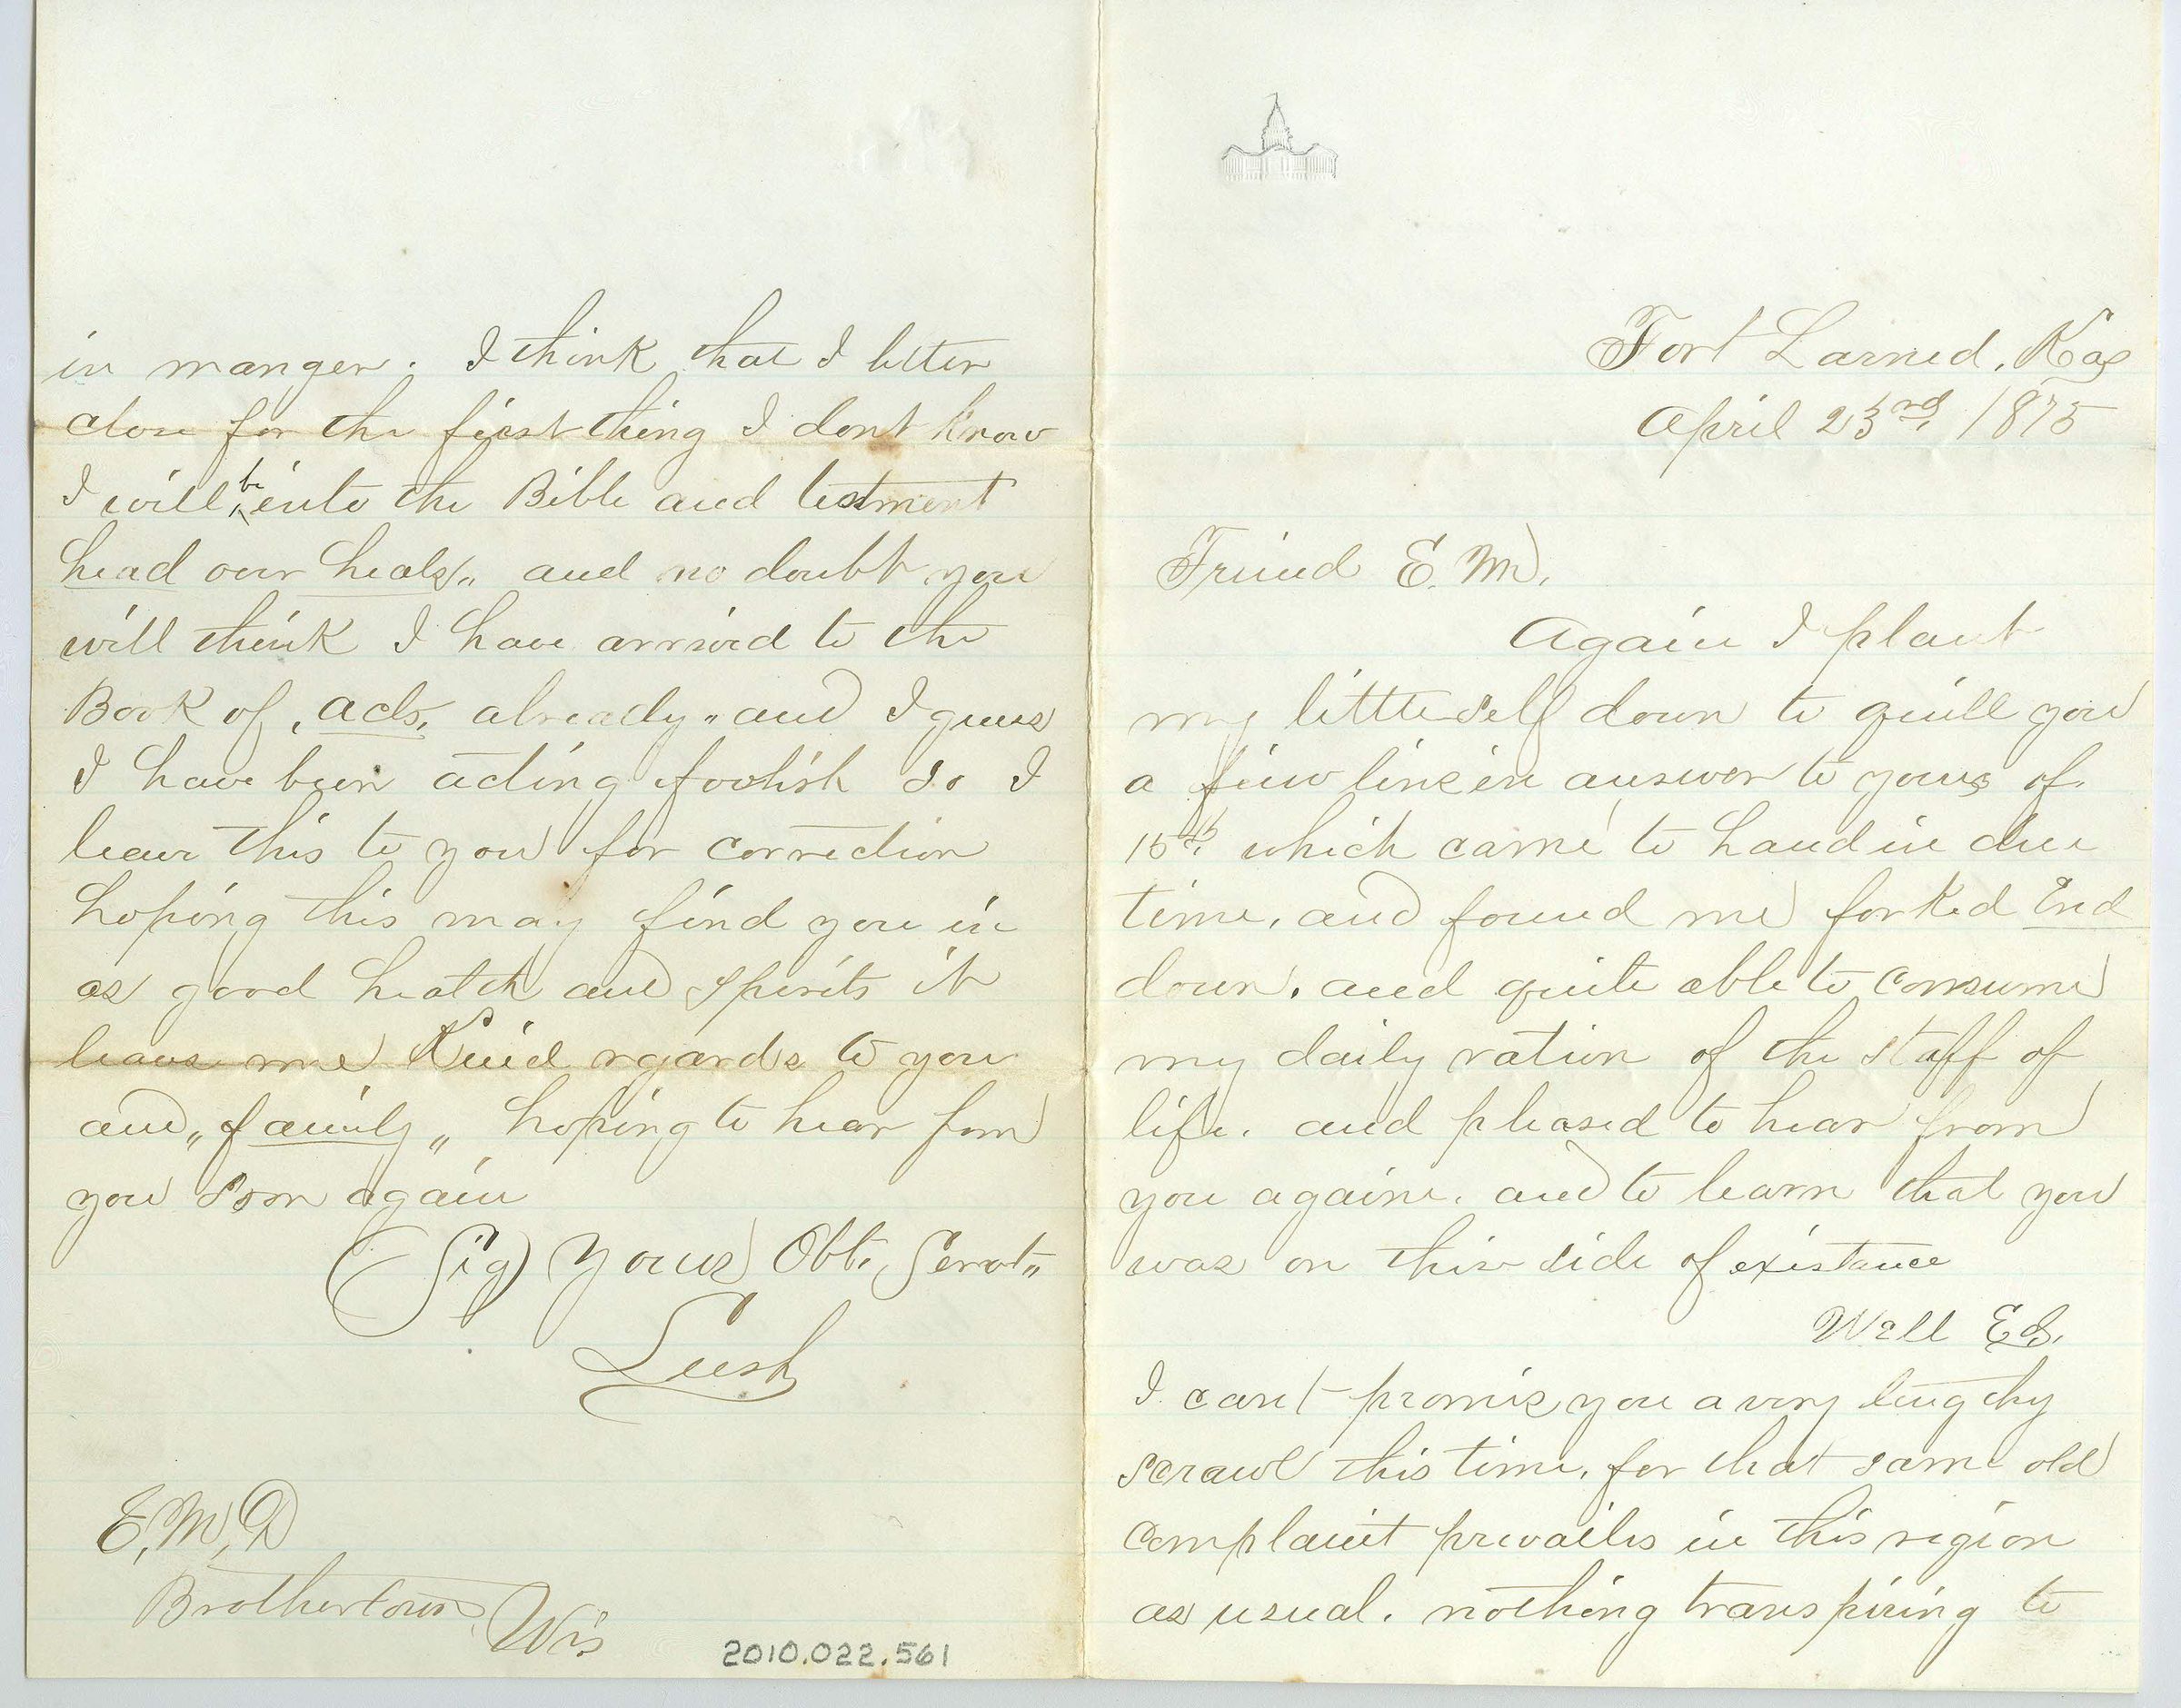 Fort Larned, Kas
April 23rd, 1875
Friend E. M.
Again I plant
my little self down to quill you
a few line in answer to yours of
15th which came to hand in due
time, and found me forked End
down. and quite able to consume
my daily ration of the staff of
life. and pleased to hear from
you againe. and to learn that you
was on this side of existance
Well Ed.
I cant promis you a very lengthy
scrawl this time, for that same old
complaint prevailes in this region
as usual. nothing transpiring to
in manger. I think that I better
close for the first thing I dont know
I will be into the Bible and testment
head over heals,, and no doubt you
will think I have arrived to the
Book of, acts, already,, and I guess
I have been acting foolish so I
leave this to you for correction
hoping this may find you in
as good health and spirits it
leaves me Kind rgards to you
and ,,family,, hoping to hear from
you soon again
(Sig) Yours Obt. Servt,,
Lush
E. M. D
Brothertown, Wis
2010.022.561